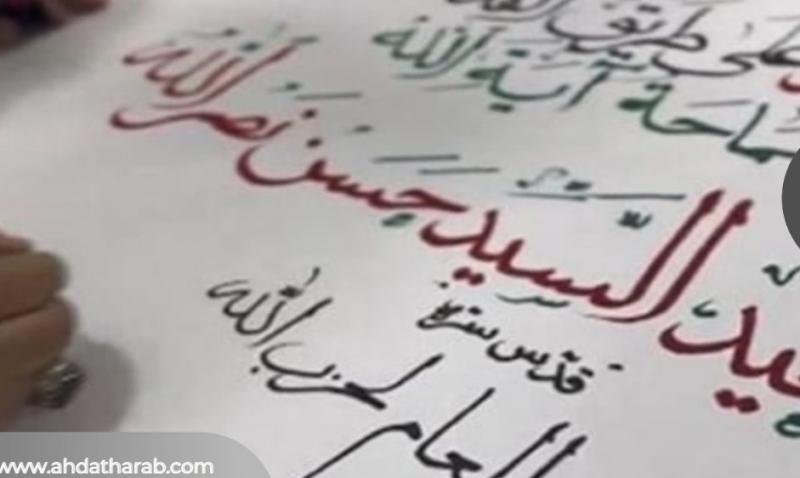 على طريق
سماحة آية الله
السيد حسن نصر الله
قدّس سرّه
العام لحزب الله
www.ahdatharab.com